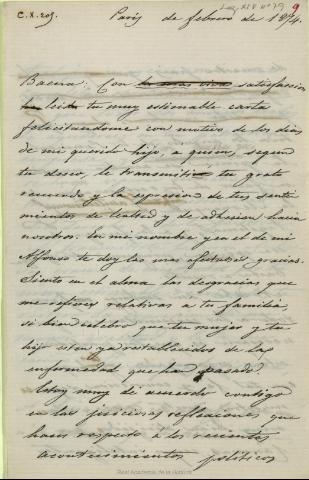 C. X. 205.
Leg. XIV nº 79
9
París de febrero de 1874.
Baena: Con la mas viva satisfaccion
he leido tu muy estimable carta
felicitandome con motivo de los dias
de mi querido hijo, a quien, segun
tu deseo, le transmití tu grato
recuerdo y la espresion de tus senti
mientos de lealtad y de adhesion hacia
nosotros. En mi nombre y en el de mi
Alfonso te doy las mas afectuosas gracias.
Siento en el alma las desgracias que
me refieres relativas a tu familia,
si bien celebro que tu mujer y tu
hijo esten ya restablecidos de las
enfermedad que han pasado.
Estoy muy de acuerdo contigo
en las juiciosas reflexiones que
haces respecto a los recientes
acontecimientos políticos
Real Academia de la Historia